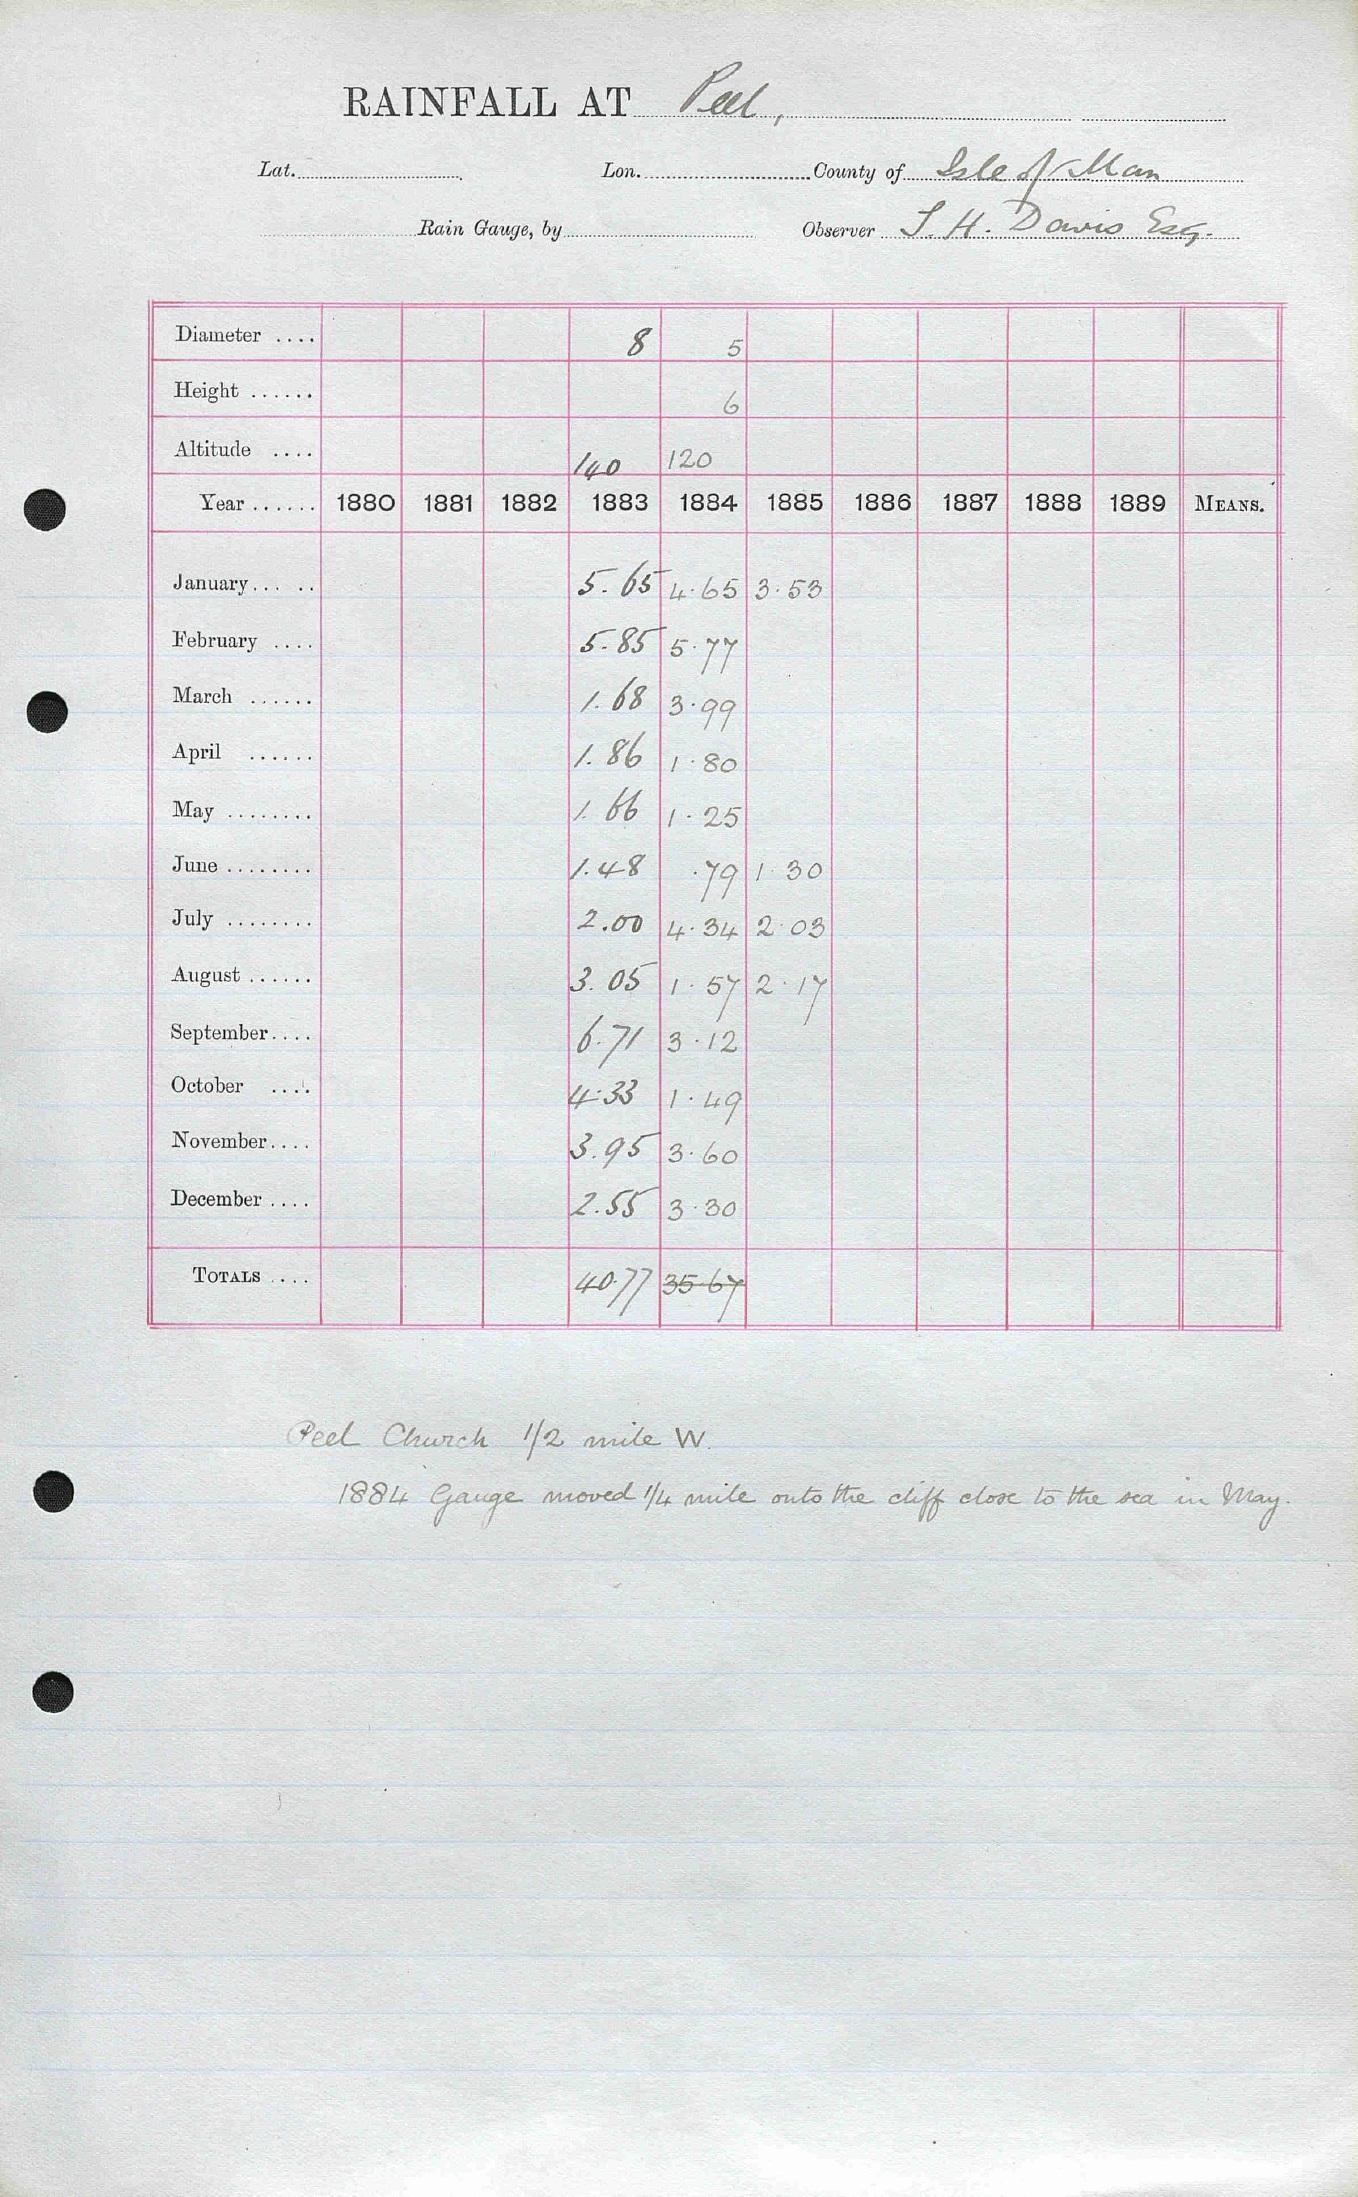 RAINFALL AT Peel,
Lat. Lon. County of Isle of Man
Rain Gauge, by Observer T. H. Davis Esq.
Diameter .... 8 5
Height ...... 6
Altitude .... 140 120
Year ...... 1880 1881 1882 1883 1884 1885 1886 1887 1888 1889 MEANS.
January... .. 5.65 4.65 3.53
February .... 5.85 5.77
March ...... 1.68 3.99
April ...... 1.86 1.80
May ........ 1.66 1.25
June ........ 1.48 .79 1.30
July ........ 2.00 4.34 2.03
August ...... 3.05 1.57 2.17
September.... 6.71 3.12
October .... 4.33 1.49
November.... 3.95 3.60
December .... 2.55 3.30
TOTALS .... 40.77 35.67
Peel Church 1/2 mile W.
1884 Gauge moved 1/4 mile onto the cliff close to the sea in May.